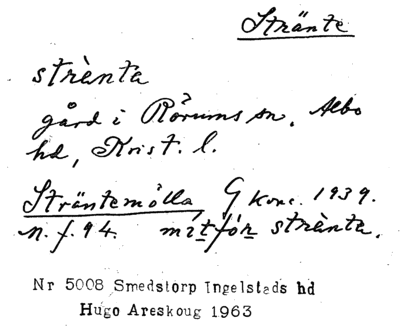 Stränte
strènta
gård i Rörums sn, Albo
hd, Krist. l.
Sträntemölla G konc. 1939.
n. f. 94. mitför strènta.
Nr 5008 Smedstorp Ingelstads hd
Hugo Areskoug 1963